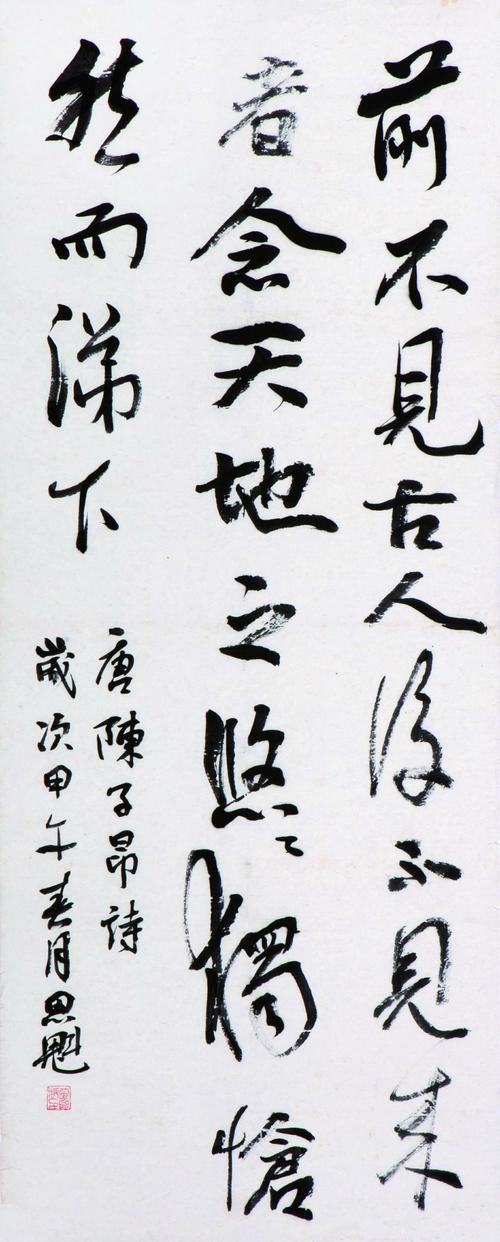 前不見古人後不見来
者念天地之悠〻獨愴
然而涕下
唐陳子昂詩
歲次甲午春月思魁